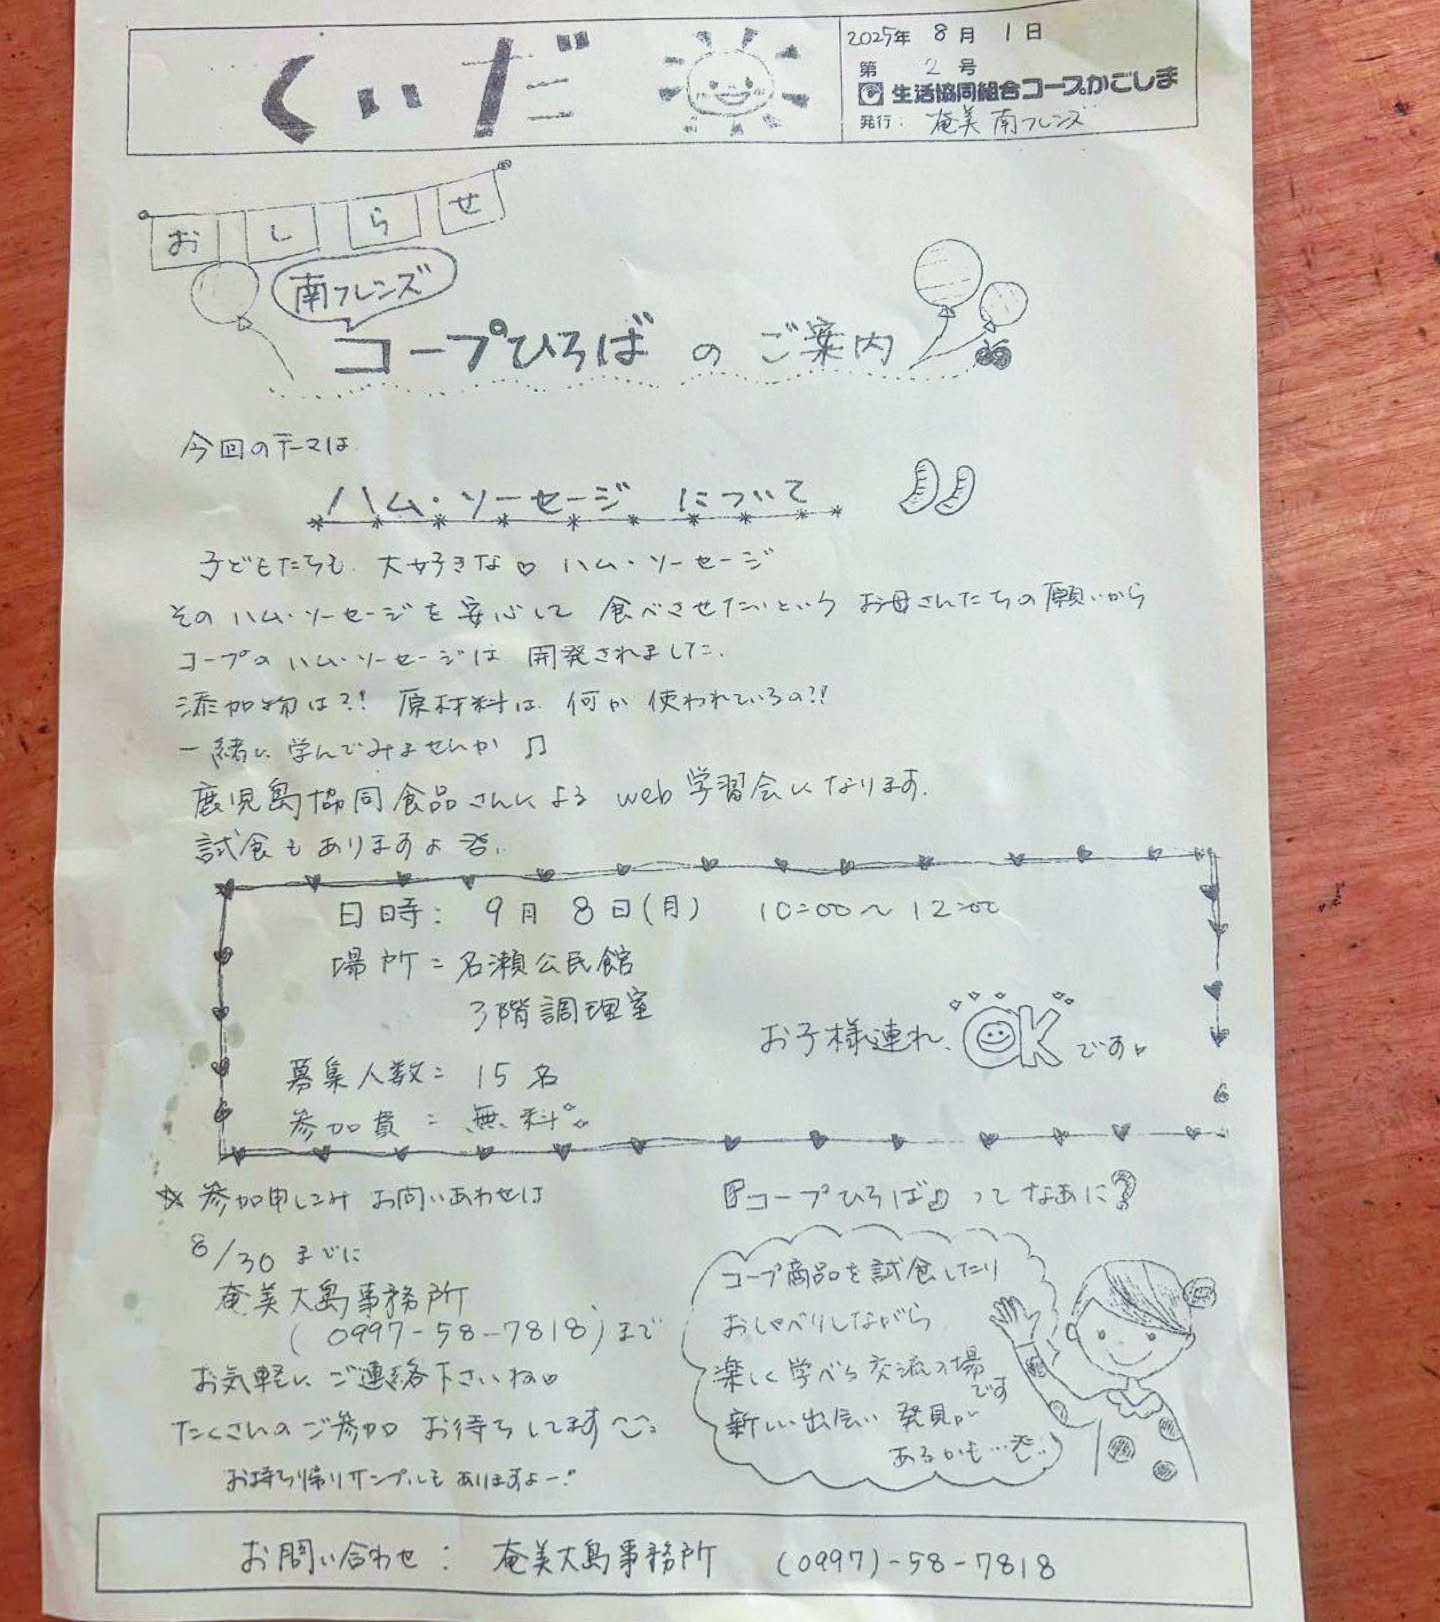 くいだ
2025年 8月 1日
第 2 号
生活協同組合コープかごしま
発行: 奄美南フレンズ
おしらせ
南フレンズ
コープひろば の ご案内
今回のテーマは
ハム・ソーセージ について
子どもたちも 大好きな♡ ハム・ソーセージ
そのハム・ソーセージを 安心して 食べさせたいという お母さんたちの願いから
コープのハム・ソーセージは 開発されました。
添加物は?! 原材料は 何が 使われているの?!
一緒に 学んでみませんか ♫
鹿児島協同食品さんによる web学習会になります。
試食もありますよ
日時: 9月 8日(月) 10:00〜12:00
場所: 名瀬公民館
3階調理室
お子様連れ、OKです♪
募集人数: 15名
参加費: 無料
☆ 参加申しこみ お問いあわせは
8/30 までに
奄美大島事務所
(0997-58-7818)まで
お気軽に ご連絡下さいね♡
たくさんのご参加 お待ちしてます
お持ち帰りサンプルも ありますよー!
『コープひろば』って なあに?
コープ商品を試食したり
おしゃべりしながら
楽しく 学べる 交流の場です
新しい出会い 発見が
あるかも…
お問い合わせ: 奄美大島事務所 (0997)-58-7818